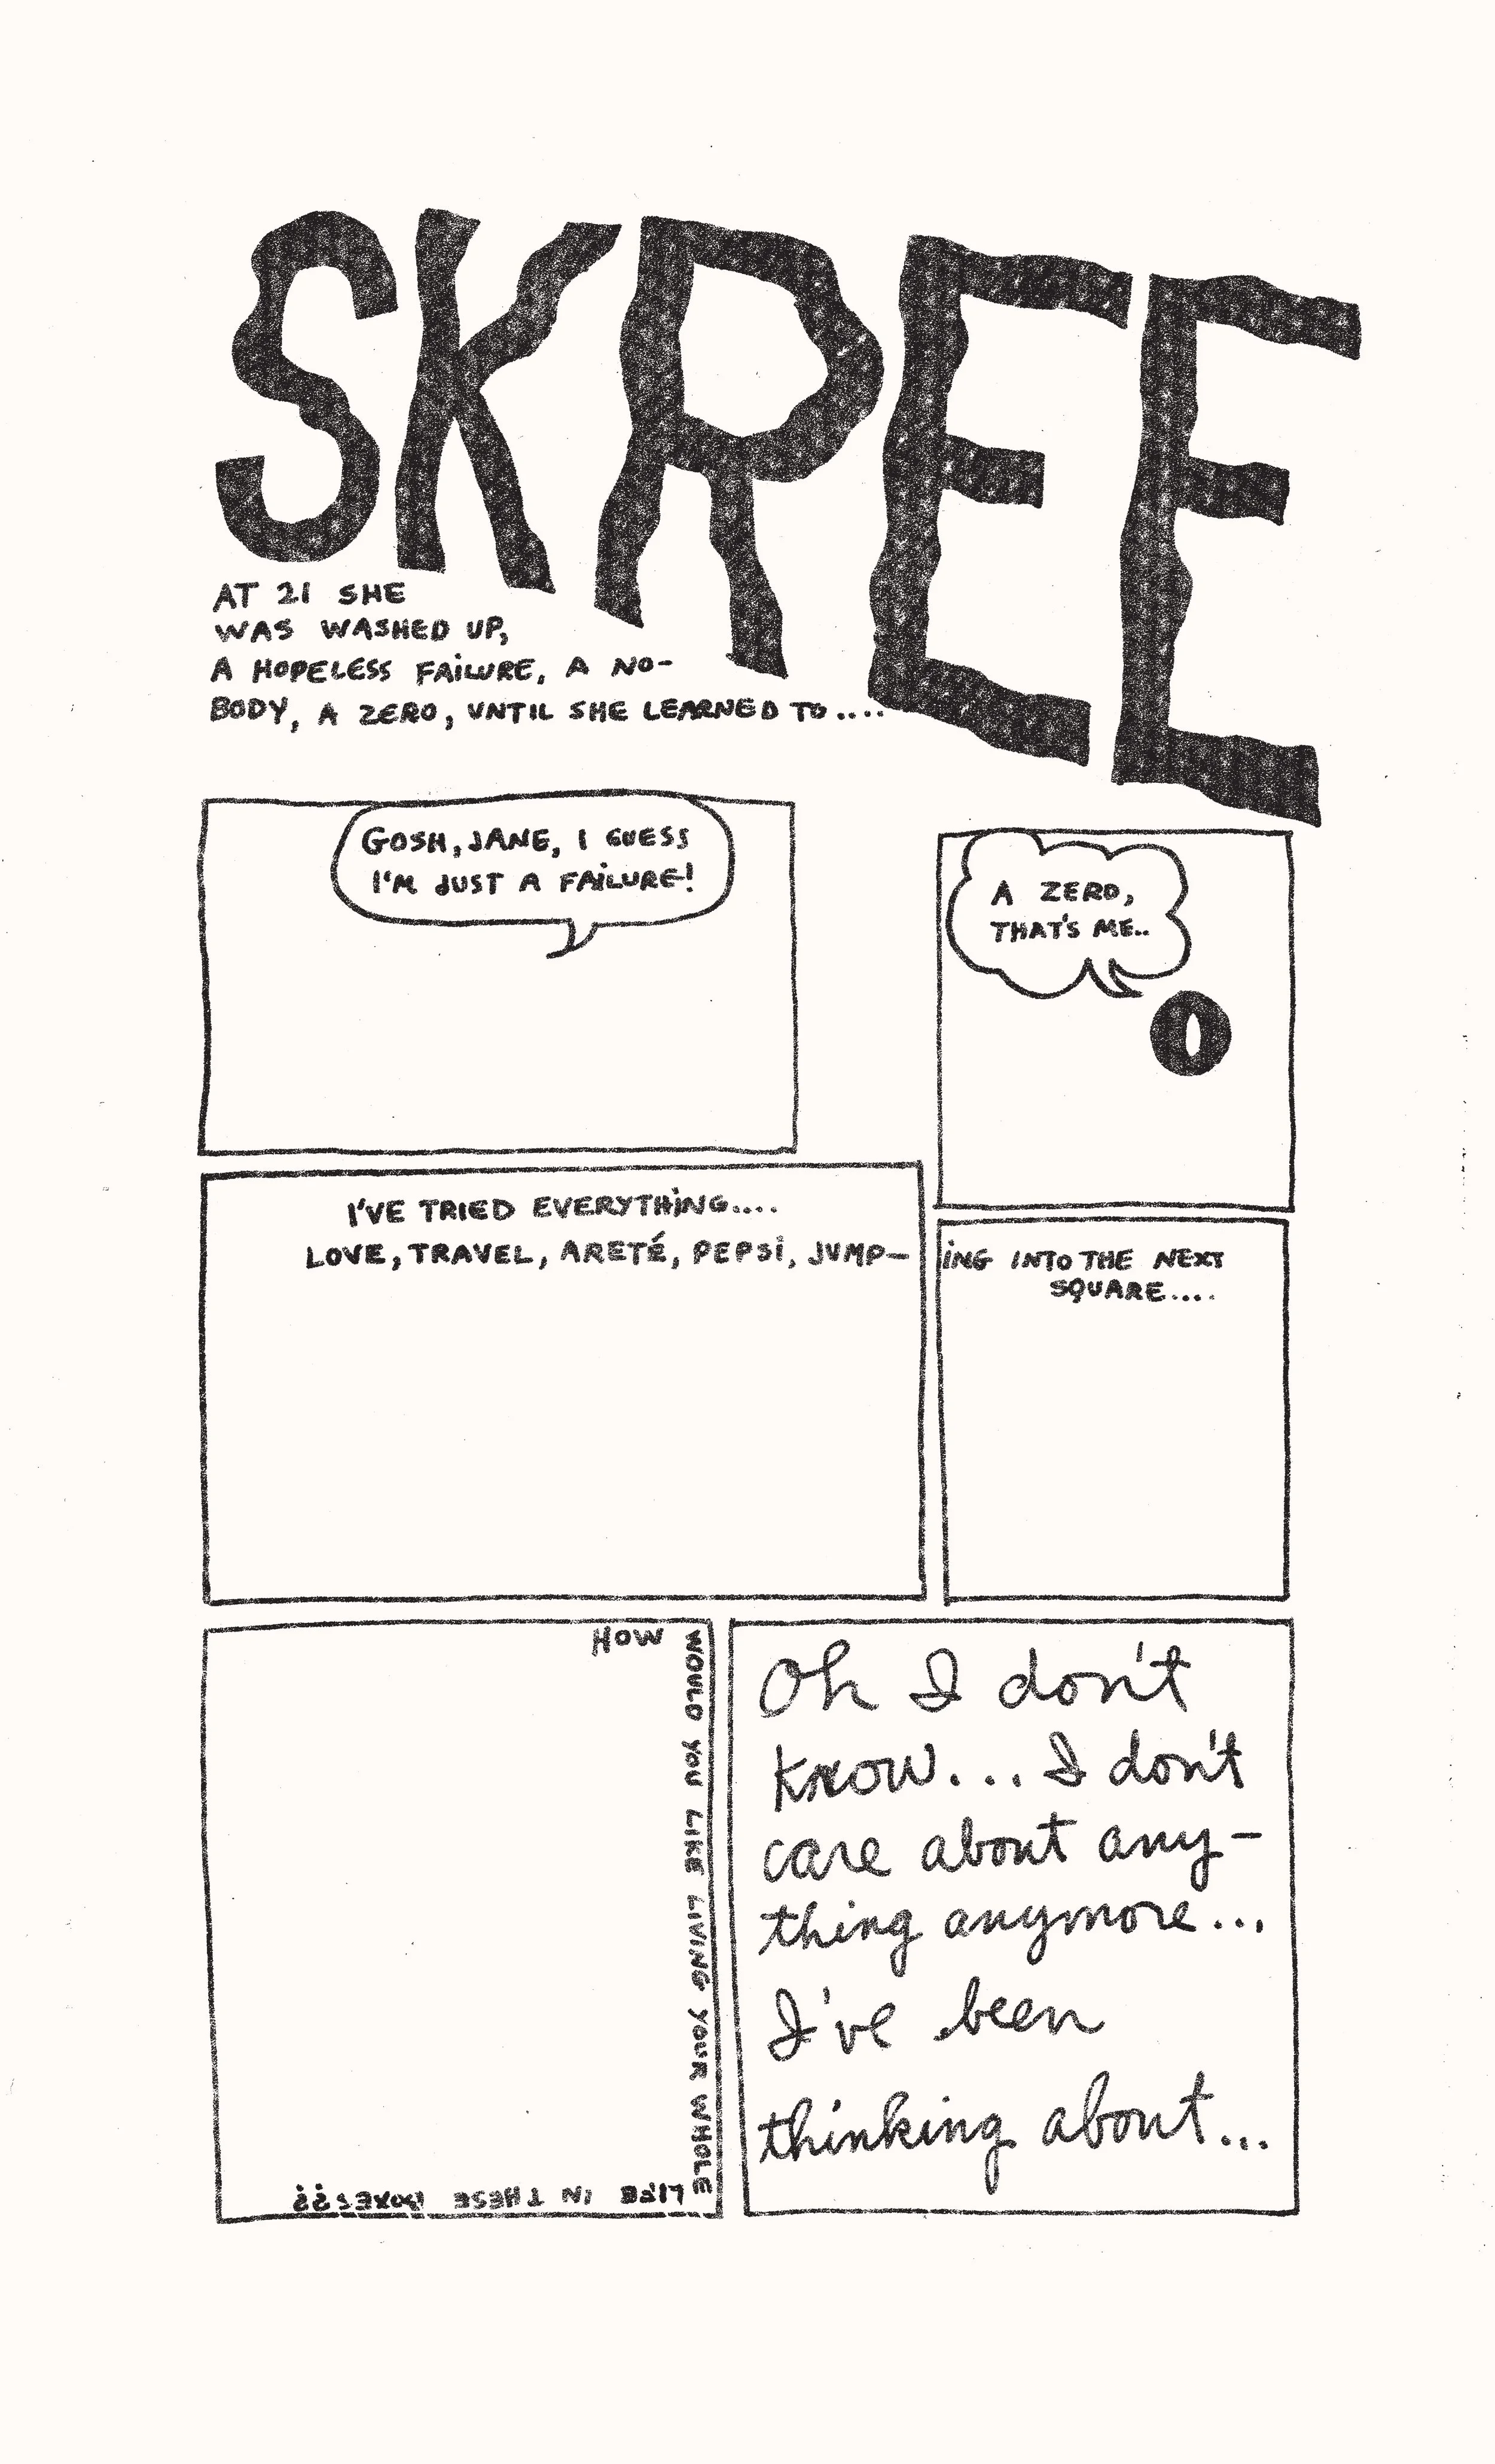 SKREE
AT 21 SHE
WAS WASHED UP,
A HOPELESS FAILURE, A NO-
BODY, A ZERO, UNTIL SHE LEARNED TO....
GOSH, JANE, I GUESS
I'M JUST A FAILURE!
A ZERO,
THAT'S ME..
0
I'VE TRIED EVERYTHING....
LOVE, TRAVEL, ARETÉ, PEPSI, JUMP-
ING INTO THE NEXT
SQUARE....
HOW
WOULD YOU LIKE LIVING YOUR WHOLE
LIFE IN THESE BOXES??
Oh I don't
know... I don't
care about any-
thing anymore...
I've been
thinking about...